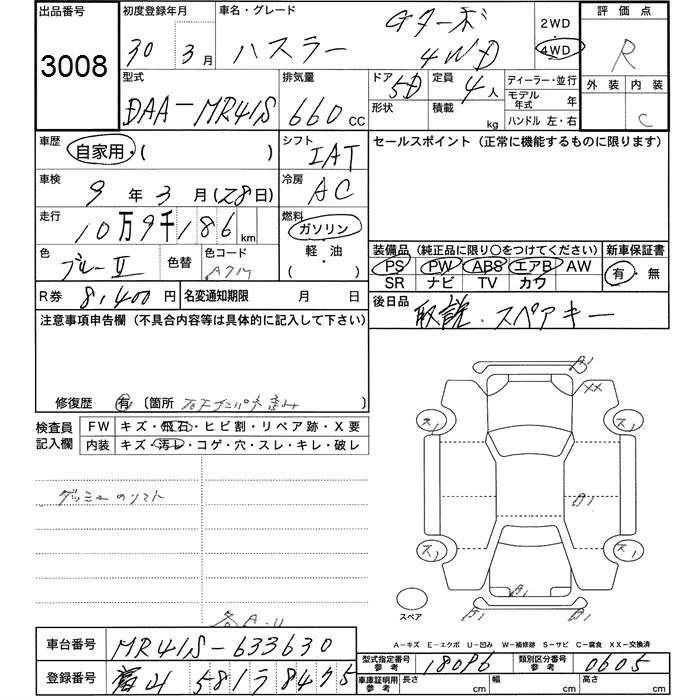 出品番号
3008
初度登録年月
30 3月
車名・グレード
ハスラー Gターボ 4WD
2WD
4WD
評価点
R
外装 内装
C
型式
DAA-MR41S
排気量
660 cc
ドア
5D
形状
定員
4人
積載
kg
ディーラー・並行
モデル年式 年
ハンドル 左・右
車歴
自家用・( )
シフト
IAT
セールスポイント (正常に機能するものに限ります)
車検
9年3月(28日)
冷房
AC
走行
10万9千186km
燃料
ガソリン
軽・油
( )
色
ブルーII
色替
色コード
装備品 (純正品に限り○をつけてください)
PS PW ABS エアB AW
SR ナビ TV カワ
新車保証書
有・無
R券 8,400円
名変通知期限 月 日
後日品
取説・スペアキー
注意事項申告欄 (不具合内容等は具体的に記入して下さい)
修復歴 有 〔箇所
検査員記入欄
FW キズ・飛石・ヒビ割・リペア跡・X要
内装 キズ・汚レ・コゲ・穴・スレ・キレ・破レ
A1
XX
ス1
ス1
A1
A1
ス1
ス1
A1
スペア
A-キズ E-エクボ U-凹み W-補修跡 S-サビ C-腐食 XX-交換済
車台番号 MR41S-633630
登録番号 富山 581 ラ 8475
型式指定番号 参考 18096
類別区分番号 参考 0605
車庫証明用 参考
長さ cm
幅 cm
高さ cm